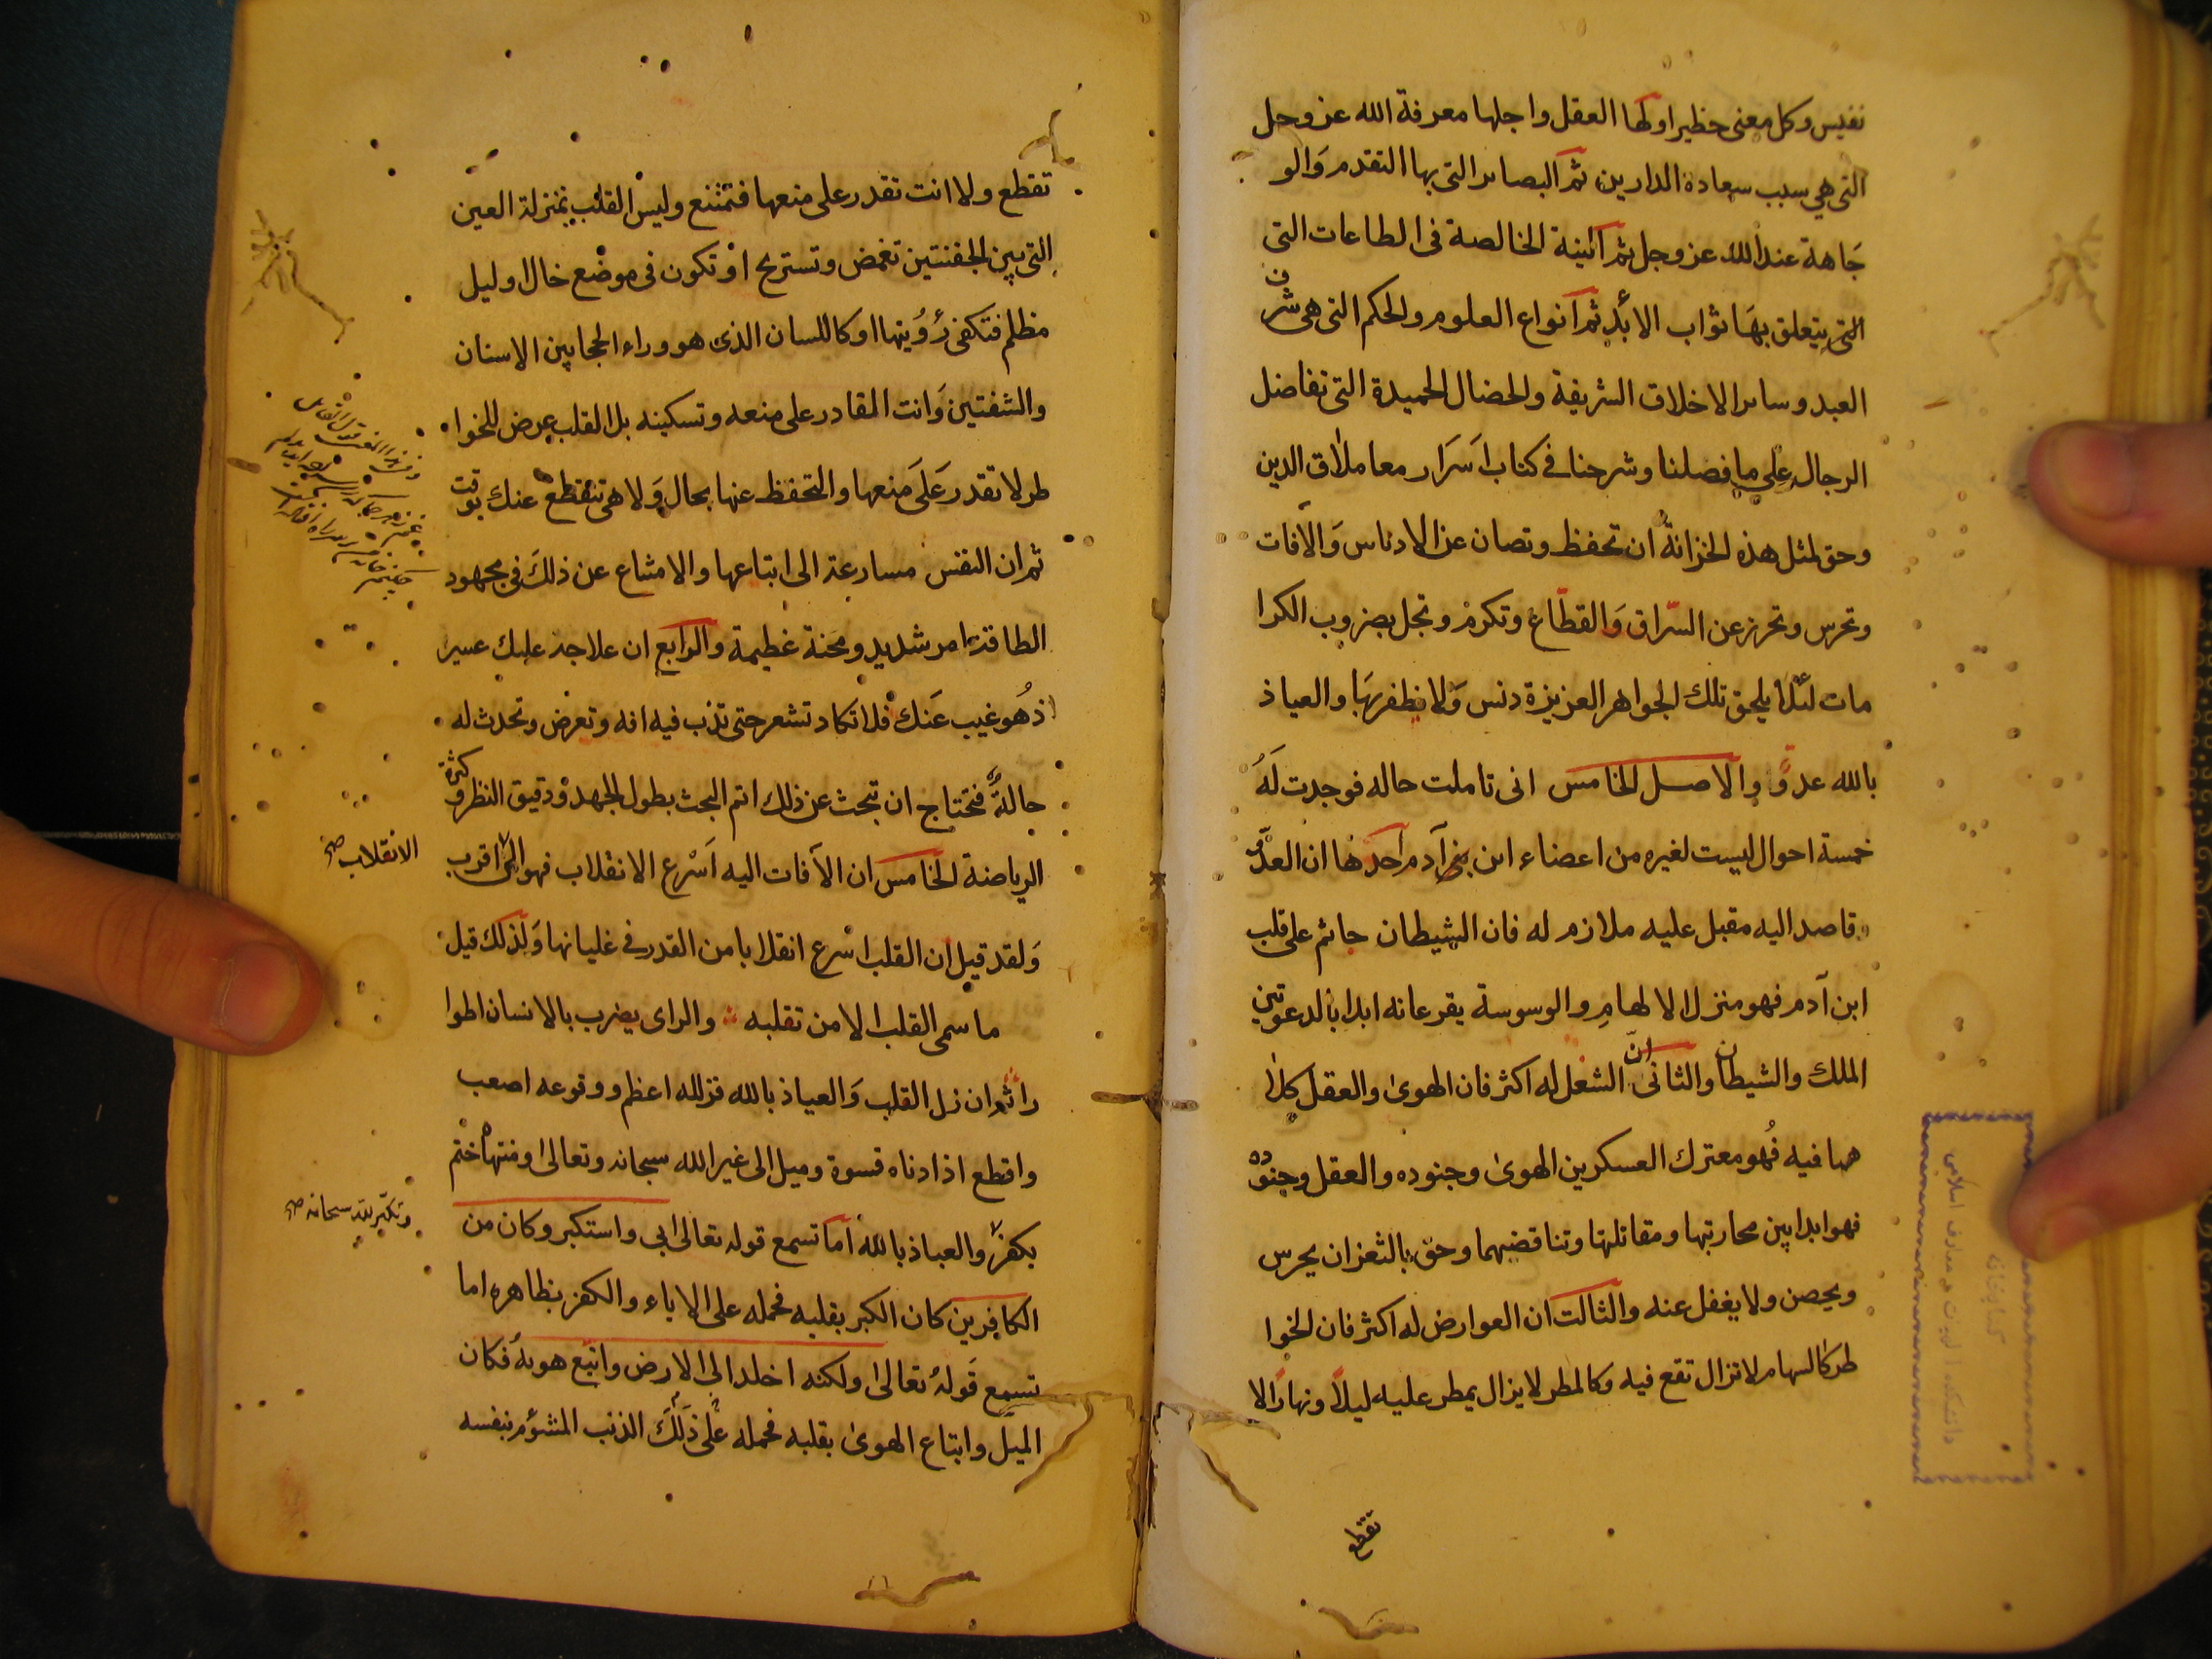 نفيس وكل معنى خطير اولها العقل واجلها معرفة الله عز وجل
التى هي سبب سعادة الدارين ثم البصاير التى بها التقدم والو
جاهة عند الله عز وجل ثم النية الخالصة فى الطاعات التى
التى يتعلق بها ثواب الابد ثم انواع العلوم والحكم التى هى شرف
العبد وساير الاخلاق الشريفة والخصال الحميدة التى تفاضل
الرجال على ما فصلنا وشرحنا فى كتاب اسرار معاملات الدين
وحق لمثل هذه الخزانة ان تحفظ وتصان عن الادناس والآفات
وتحرس وتحرز عن السراق والقطاع وتكرم وتجل بضروب الكرا
مات لئلا يلحق تلك الجواهر العزيزة دنس ولا يظفر بها والعياذ
بالله عدو والاصل الخامس انى تاملت حاله فوجدت له
خمسة احوال ليست لغيره من اعضاء ابن بنى آدم احدها ان العدو
قاصد اليه مقبل عليه ملازم له فان الشيطان جاثم على قلب
ابن آدم فهو منزل الالهام والوسوسة يقرعانه ابدا بالدعوتين
الملك والشيطان والثانى ان الشغل له اكثر فان الهوى والعقل كلا
هما فيه فهو معترك العسكرين الهوى وجنوده والعقل وجنوده
فهو ابدا بين محاربتها ومقاتلتها وتناقضيهما وحق بالثغر ان يحرس
ويحصن ولا يغفل عنه والثالث ان العوارض له اكثر فان الخوا
طر كالسهام لا تزال تقع فيه وكالمطر لا يزال يمطر عليه ليلا ونهارا لا
تقطع
كتابخانه
دانشكده الهيات و معارف اسلامى
تقطع ولا انت تقدر على منعها فتمتنع وليس القلب بمنزلة العين
التى بين الجفنتين تغمض وتستريح او تكون فى موضع خال اوليل
مظلم فتكفى رؤيتها اوكاللسان الذى هو وراء الحجابين الاسنان
والشفتين وانت المقادر على منعه وتسكينه بل القلب عرض للخوا
طر لا تقدر على منعها والتحفظ عنها بحال ولا هى تنقطع عنك بوقت
ثم ان النفس مسارعة الى ابتاعها والامتناع عن ذلك فى مجهود
الطاقة امر شديد ومحنة عظيمة والرابع ان علاجه عليك عسير
اذ هو غيب عنك فلا تكاد تشعر حتى تذب فيه افه وتعرض وتحدث له
حالة فتحتاج ان تبحث عن ذلك اتم البحث بطول الجهد ودقيق النظر وكثرة
الرياضة الخامس ان الآفات اليه اسرع الانقلاب فهو الى اقرب
الانقلاب صح
ولقد قيل ان القلب اسرع انقلابا من القدر فى غليانها ولذلك قيل
ما سمى القلب الا من تقلبه والراى يضرب بالانسان اطوا
را ثم ان زل القلب والعياذ بالله فزلله اعظم ووقوعه اصعب
واقطع اذ ادناه قسوة وميل الى غير الله سبحانه وتعالى ومنتهاه ختم
بكفر والعياذ بالله اما تسمع قوله تعالى ابى واستكبر وكان من
الكافرين كان الكبر بقلبه فحمله على الاباء والكفر بظاهره اما
تسمع قوله تعالى ولكنه اخلد الى الارض واتبع هويه فكان
الميل وابتاع الهوى بقلبه فحمله على ذلك الذنب المشؤم بنفسه